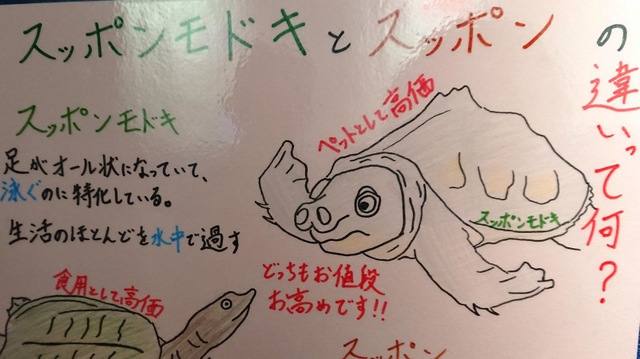 スッポンモドキとスッポンの違いって何?
スッポンモドキ
足がオール状になっていて、
泳ぐのに特化している。
生活のほとんどを水中で過す
ペットとして高価
スッポンモドキ
どっちもお値段
お高めです!!
食用として高価
スッポン